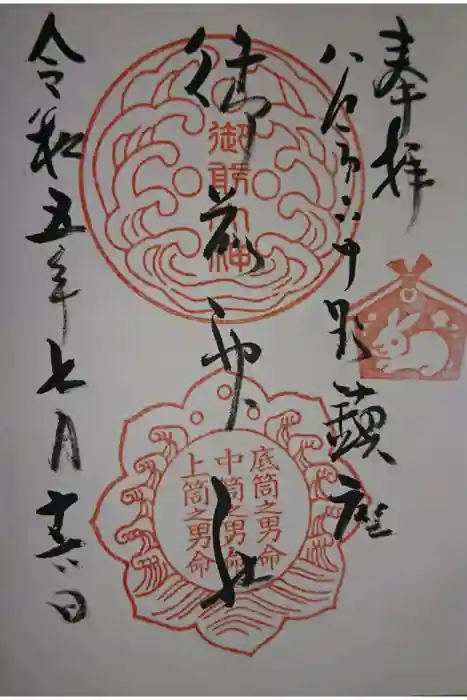 奉拝
八戸市小中野鎮座
御前神社
御前神
底筒之男命
中筒之男命
上筒之男命
令和五年七月十六日